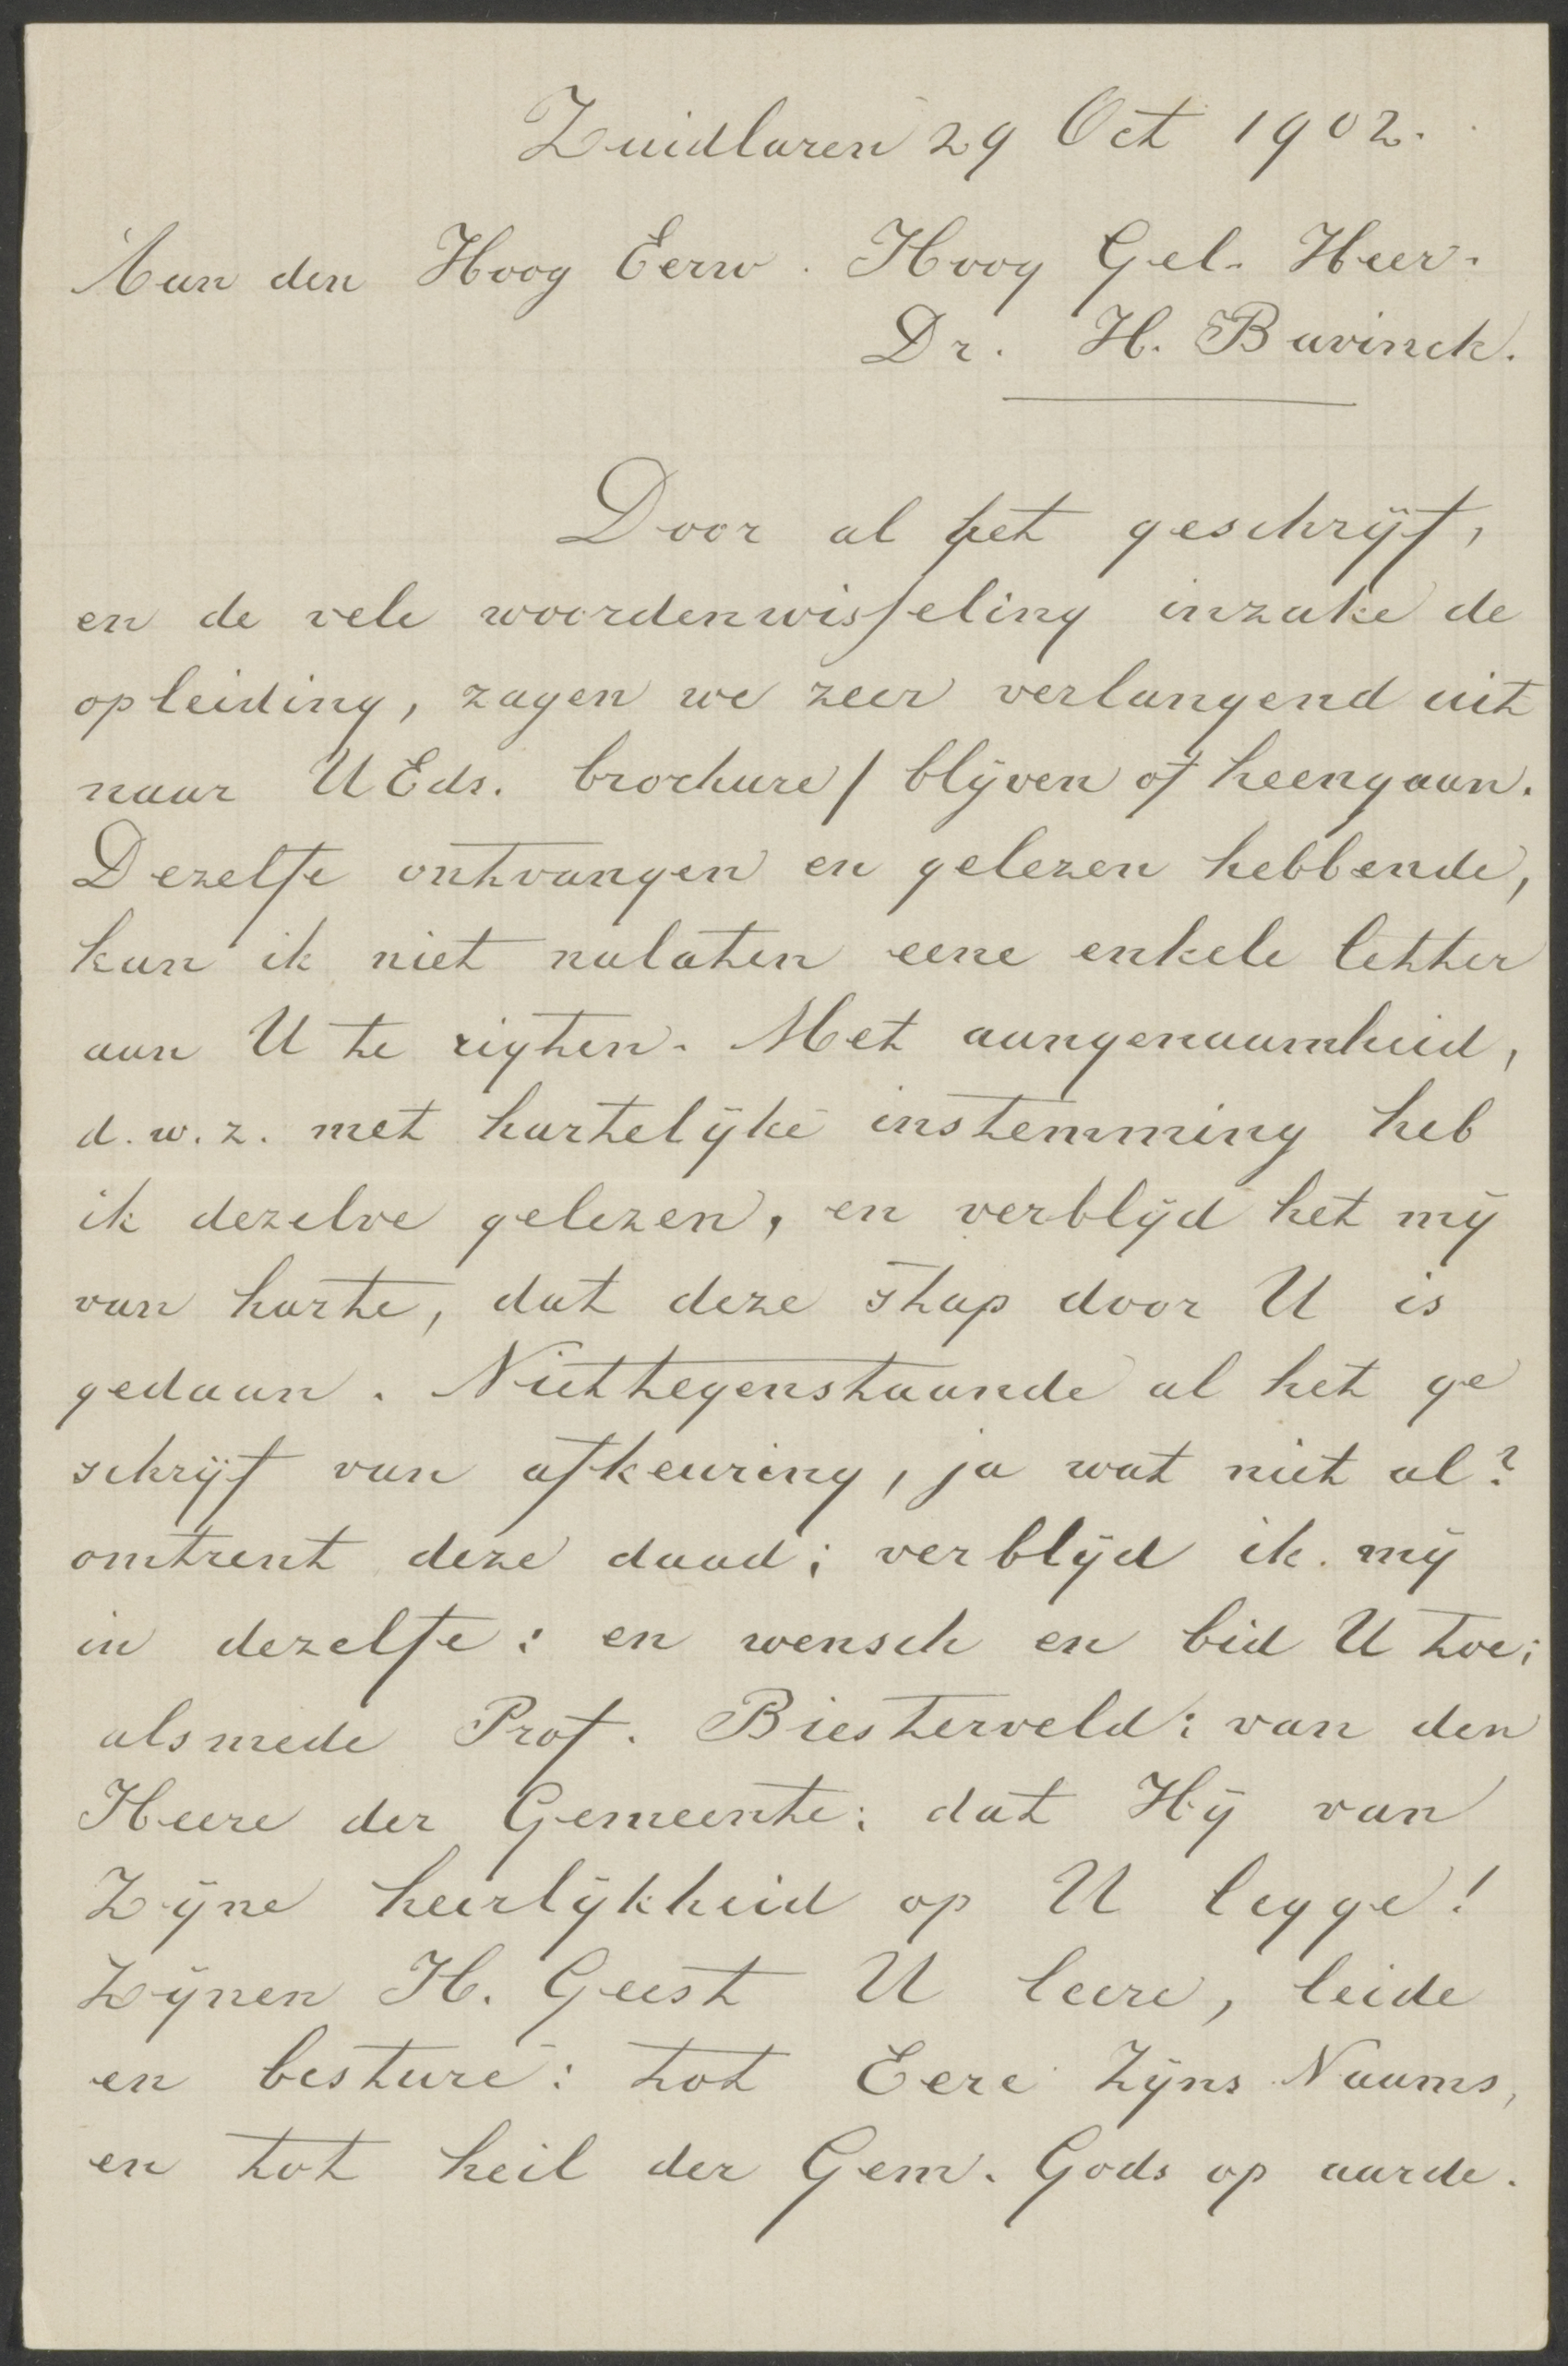 Zuidlaren 29 Oct 1902.
Aan den Hoog Eerw. Hoog Gel. Heer.
Dr. H. Bavinck.
Door al het geschrijf,
en de vele woordenwisseling inzake de
opleiding, zagen we zeer verlangend uit
naar UEds. brochure / blijven of heengaan.
Dezelfe ontvangen en gelezen hebbende,
kan ik niet nalaten eene enkele letter
aan U te rigten. Met aangenaamheid,
d.w.z. met hartelijke instemming heb
ik dezelve gelezen, en verblijd het mij
van harte, dat deze stap door U is
gedaan. Niettegenstaande al het ge
schrijf van afkeuring, ja wat niet al?
omtrent deze daad; verblijd ik mij
in dezelfe: en wensch en bid U toe;
alsmede Prof. Biesterveld: van den
Heere der Gemeente: dat Hij van
Zijne heerlijkheid op U legge!
Zijnen H. Geest U leere, leide
en besture: tot Eere Zijns Naams,
en tot heil der Gem. Gods op aarde.